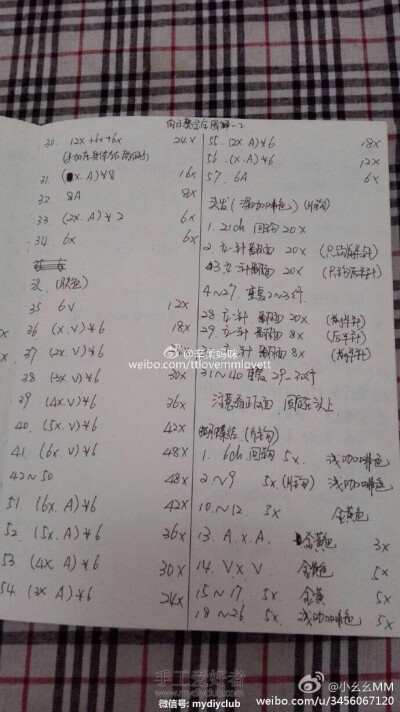 30. 12X+6X+6X 24X
31. (X.A)*8 16X
32. 8A 8X
33. (2X.A)*2 6X
34. 6X 6X
头.(肤色)
35 6V 12X
36 (X.V)*6 18X
37 (2X.V)*6
38 (3X.V)*6 30X
39 (4X.V)*6 36X
40. (5X.V)*6 42X
41. (6X.V)*6 48X
42~50 48X
51. (6X.A)*6 42X
52. (5X.A)*6 36X
53 (4X.A)*6 30X
54. (3X A)*6 24X
55. (2X.A)*6 18X
56. (X.A)*6 12X
57. 6A 6X
头发(深咖啡色)(片钩)
1. 21ch 回钩 20X
2. 立一针 翻面 20X (只钩前半针)
3. 立一针 翻面 20X (只钩后半针)
4~27. 重复2~3行
28. 立一针 翻面 8X (前半针)
29. 立一针 翻面 8X (后半针)
立一针 翻面 8X (前半针)
31~40 重复 29~30行
注意看正反面 固定头上
蝴蝶结 (片钩)
1. 6ch 回钩 5X 浅咖啡色
2.~9 5X (片钩) 浅咖啡色
10.~12. 5X 金黄色
13. A.X.A 金黄色 3X
14. V X V 金黄色 5X
15~17 金黄 5X
18~26 浅咖啡色 5X
@辛柔妈咪
weibo.com/ttlovemmlovett
手工爱好者
www.mydiyclub.com
微信号: mydiyclub
@小幺幺MM
weibo.com/u/3456067120